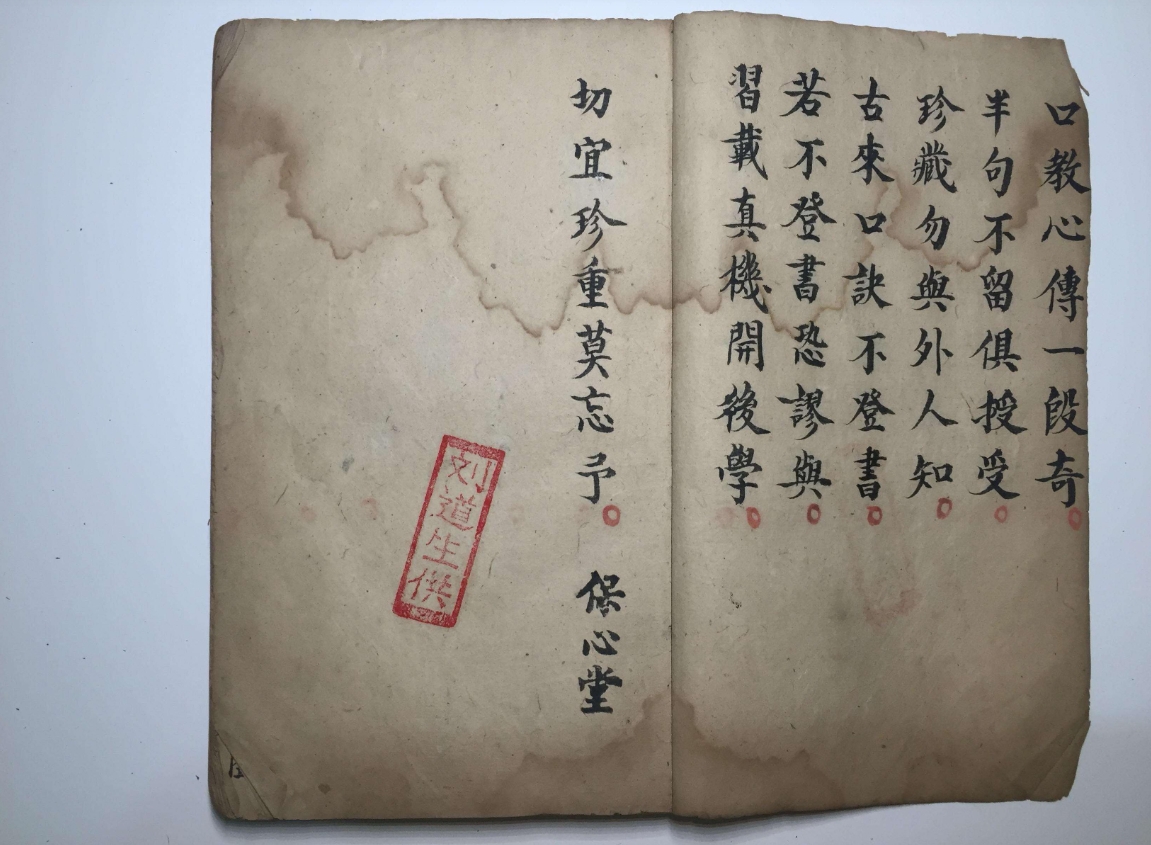 口教心傳一段奇
半句不留俱授受
珍藏勿與外人知
古來口訣不登書
若不登書恐謬與
習載真機開後學
切宜珍重莫忘予 保心堂
刘道生供